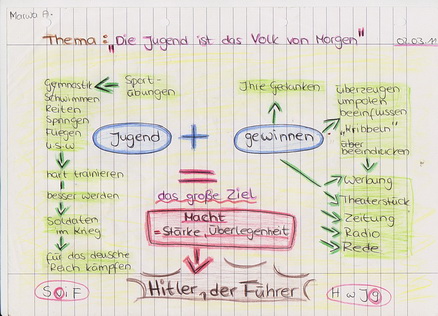 Marwa A.
Thema: "Die Jugend ist das Volk von Morgen"
02.03.11
Gymnastik
Schwimmen
Reiten
Springen
Fliegen
u.s.w
Sport-
übungen
hart trainieren
besser werden
Soldaten
im Krieg
für das deutsche
Reich kämpfen
Jugend
+
gewinnen
Ihre Gedanken
überzeugen
umpolen
beeinflussen
"kribbeln"
über
beeindrucken
Werbung
Theaterstück
Zeitung
Radio
Rede
=
das große Ziel
Macht
= Stärke, Überlegenheit
Hitler, der Führer